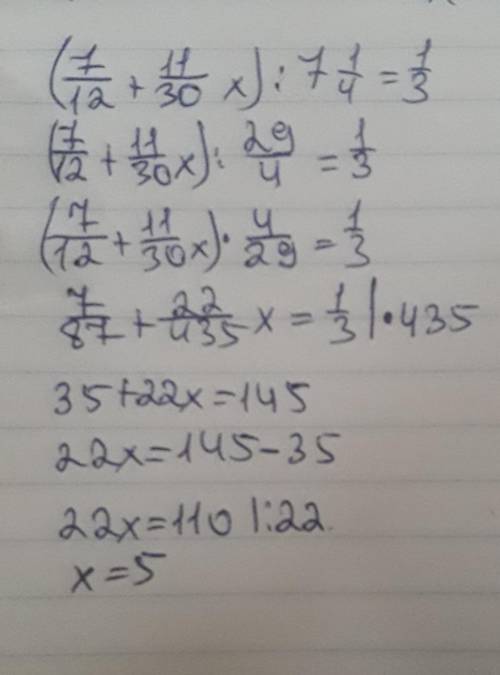 (7/12 + 11/30 x) : 7 1/4 = 1/3
(7/12 + 11/30 x) : 29/4 = 1/3
(7/12 + 11/30 x) • 4/29 = 1/3
7/87 + 22/435 x = 1/3 | • 435
35+22x=145
22x=145-35
22x=110 |:22
x=5